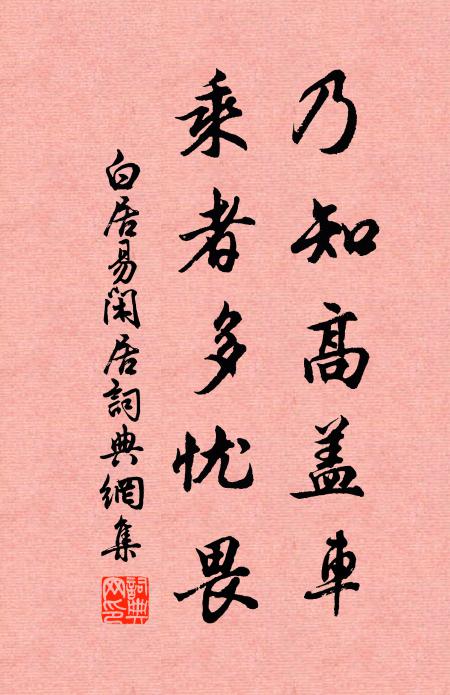 乃知高盖車
乘者多忧畏
白居易閑居詞典網集
詞典网印